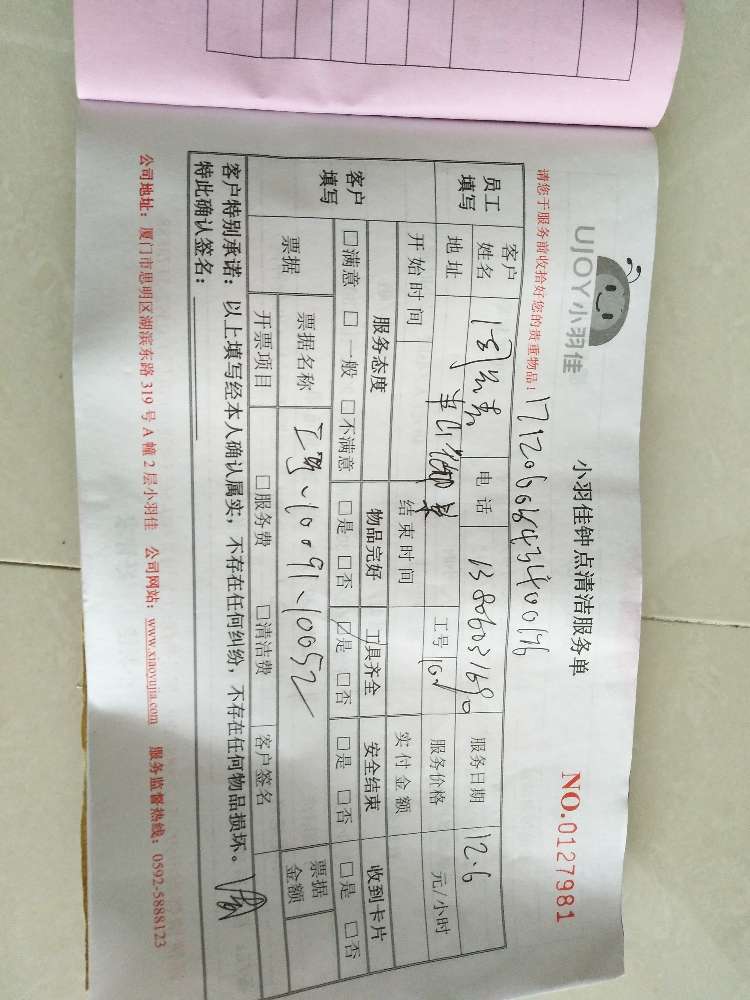 UJOY小羽佳
小羽佳钟点清洁服务单
NO.0127981
请您于服务前收拾好您的贵重物品！
员工填写 客户姓名 电话 服务日期 12.6
地址 工号 服务价格 元/小时
开始时间 结束时间 实付金额
客户填写 服务态度 物品完好 工具齐全 安全结束 收到卡片
□满意 □一般 □不满意 □是 □否 □是 □否 □是 □否 □是 □否
票据 票据名称 工号、10091、10052 票据金额
开票项目 □服务费 □清洁费 客户签名
客户特别承诺：以上填写经本人确认属实，不存在任何纠纷，不存在任何物品损坏。
特此确认签名：
公司地址：厦门市思明区湖滨东路 319 号 A 幢 2 层小羽佳 公司网站：www.xiaoyujia.com 服务监督热线：0592-5888123